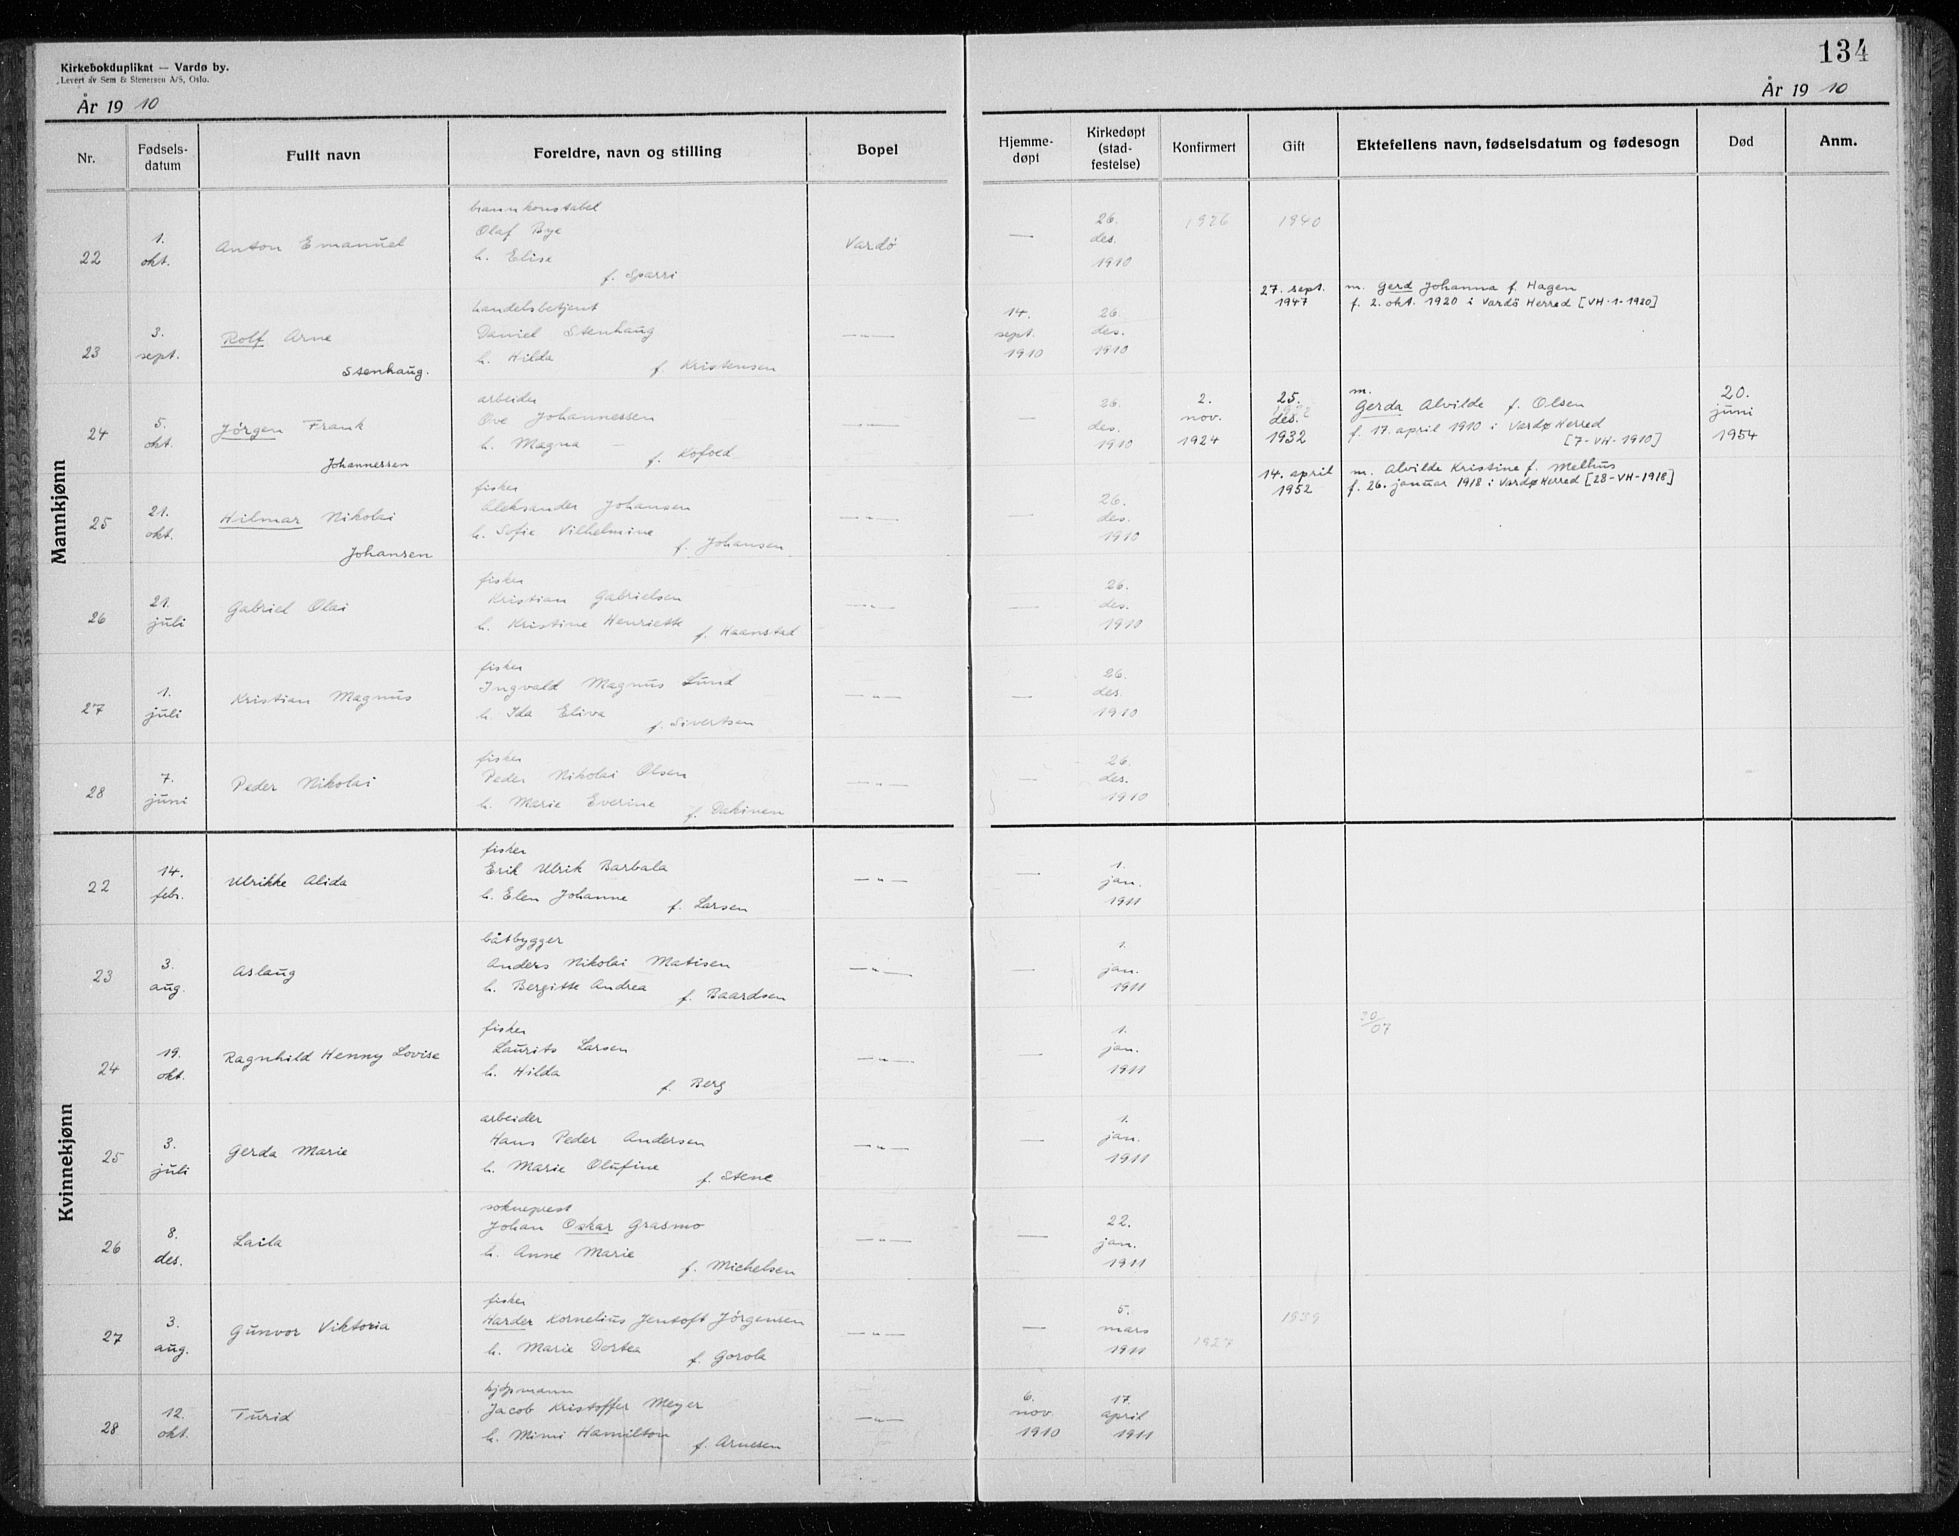 Kirkebokduplikat — Vardø by.
Levert av Sem & Stenersen A/S, Oslo.
134
År 19 10
År 19 10
Nr. Fødsels-datum Fullt navn Foreldre, navn og stilling Bopel Hjemme-døpt Kirkedøpt (stad-festelse) Konfirmert Gift Ektefellens navn, fødselsdatum og fødesogn Død Anm.
Mannkjønn
brannkonstabel
22 1. okt. Anton Emanuel Olaf Bye Vardö — 26. des. 1910 1926 1940
h. Elise
f. Sparri
handelsbetjent
23 3. sept. Rolf Arne Daniel Stenhaug —"— 14. sept. 1910 26. des. 1910 27. sept. 1947 m. Gerd Johanna f. Hagen
f. 2. okt. 1920 i Vardö Herred [VH-1-1920]
Stenhaug. h. Hilda f. Kristensen
arbeider
24 5. okt. Jörgen Frank Ove Johannessen —"— — 26. des. 1910 2. nov. 1924 25. des. 1932 m. Gerda Alvilde f. Olsen 20. juni 1954
f. 17. april 1910 i Vardø Herred
[7-VH-1910]
Johannessen h. Magna — f. Kofoed
fisker
25 21. okt. Hilmar Nikolai Aleksander Johansen —"— — 26. des. 1910 14. april 1952 m. Alvilde Kristine f. Melhus
f. 26. januar 1918 i Vardø Herred [28-VH-1918]
Johansen h. Sofie Vilhelmine f. Johansen
fisker
26 21. juli Gabriel Olai Kristian Gabrielsen —"— — 26. des. 1910
h. Kristine Henriette f. Haanstad
fisker
27 1. juli Kristian Magnus Ingvald Magnus Lund —"— — 26. des. 1910
h. Ida Eliva f. Sivertsen
fisker
28 7. juni Peder Nikolai Peder Nikolai Olsen —"— — 26. des. 1910
h. Marie Everine f. Dakinen
Kvinnekjønn
fisker
22 14. febr. Ulrikke Alida Erik Ulrik Barbala —"— — 1. jan. 1911
h. Elen Johanne f. Larsen
båtbygger
23 3. aug. Aslaug Anders Nikolai Matisen —"— — 1. jan. 1911
h. Bergitte Andrea f. Baardsen
fisker
24 19. okt. Ragnhild Henny Lovise Laurits Larsen —"— — 1. jan. 1911 30/07
h. Hilda f. Berg
arbeider
25 3. juli Gerda Marie Hans Peder Andersen —"— — 1. jan. 1911
h. Marie Olufine f. Stene
sokneprest
26 8. des. Laila Johan Oskar Grasmo —"— — 22. jan. 1911
h. Anne Marie f. Michelsen
fisker
27 3. aug. Gunvor Viktoria Harder Kornelius Jentoft Jörgensen —"— — 5. mars 1911 1927 1939
h. Marie Dortea f. Gorola
kjøpmann
28 12. okt. Turid Jacob Kristoffer Meyer —"— 6. nov. 1910 17. april 1911
h. Mimi Hamilton f. Arnesen